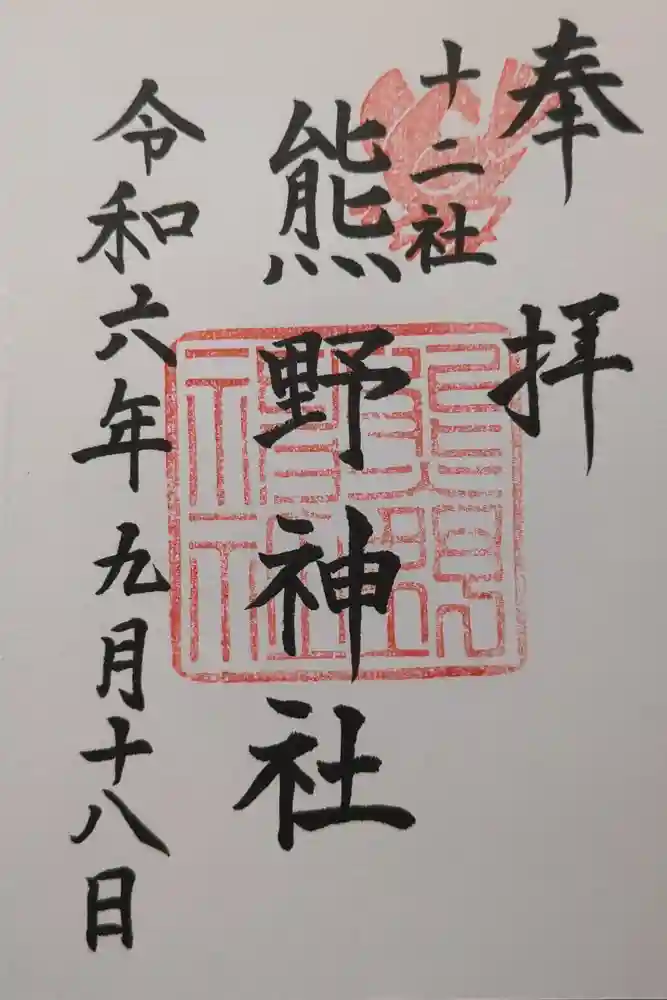 奉拝
十二社
熊野神社
令和六年九月十八日